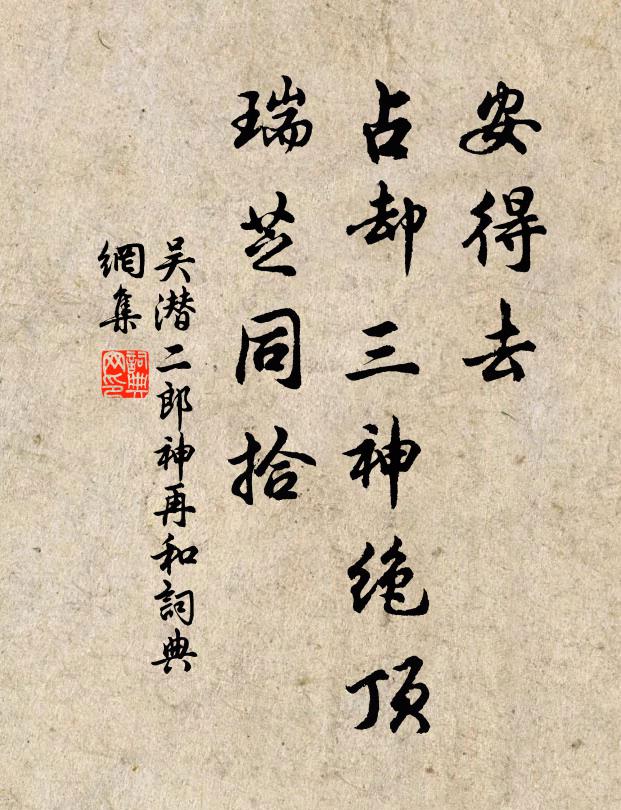 安得去
占却三神绝顶
瑞芝同拾
吴潜二郎神再和詞典
網集
詞典网印